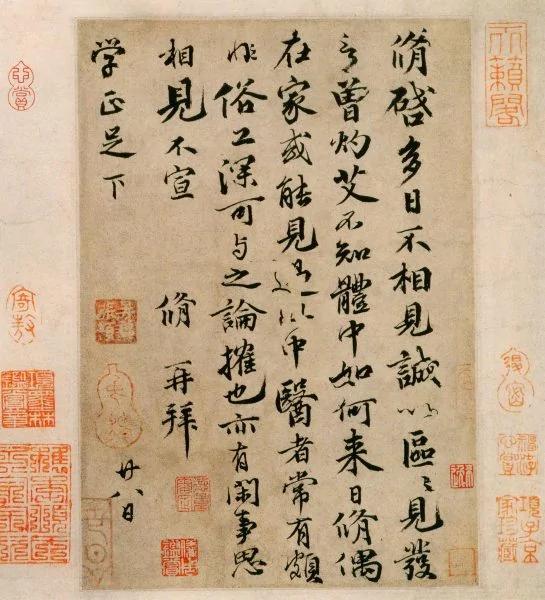 脩啓多日不相見誠以區〻見發
言曾灼艾不知體中如何来日脩偶
在家或能見過此中醫者常有頗
非俗工深可与之論搉也亦有閑事思
相見不宣 脩再拜 廿八日
学正足下
天籟閣
項子京家珍藏
項墨林鑑賞章